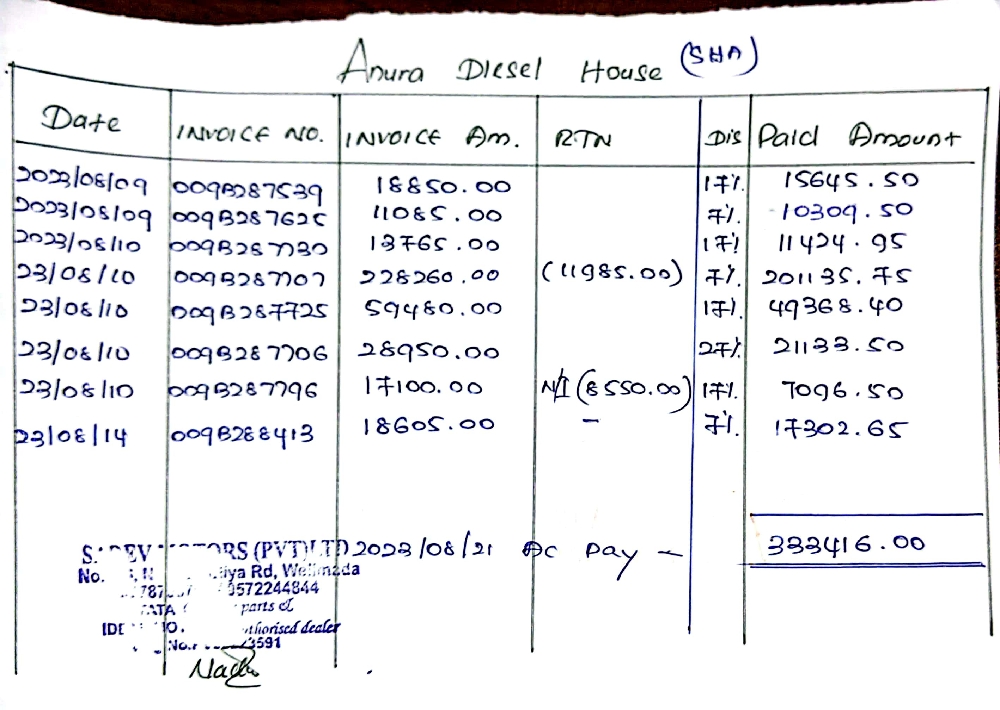 Anura Diesel House (SHA)
Date INVOICE NO. INVOICE Am. RTN Dis Paid Amount
2023/08/09 009B287539 18850.00 17% 15645.50
2023/08/09 009B287625 11085.00 7% 10309.50
2023/08/10 009B287730 13765.00 17% 11424.95
23/08/10 009B287707 228260.00 (11985.00) 7% 201135.75
23/08/10 009B287725 59480.00 17% 49368.40
23/08/10 009B287706 28950.00 27% 21133.50
23/08/10 009B287796 17100.00 N/I (8550.00) 17% 7096.50
23/08/14 009B288413 18605.00 – 7% 17302.65
2023/08/21 Ac Pay – 333416.00
(PVT) LTD
No. Rd, Welimada
0572244844
parts &
dealer
3591